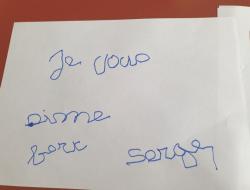 Je vous
aime
berk Serge